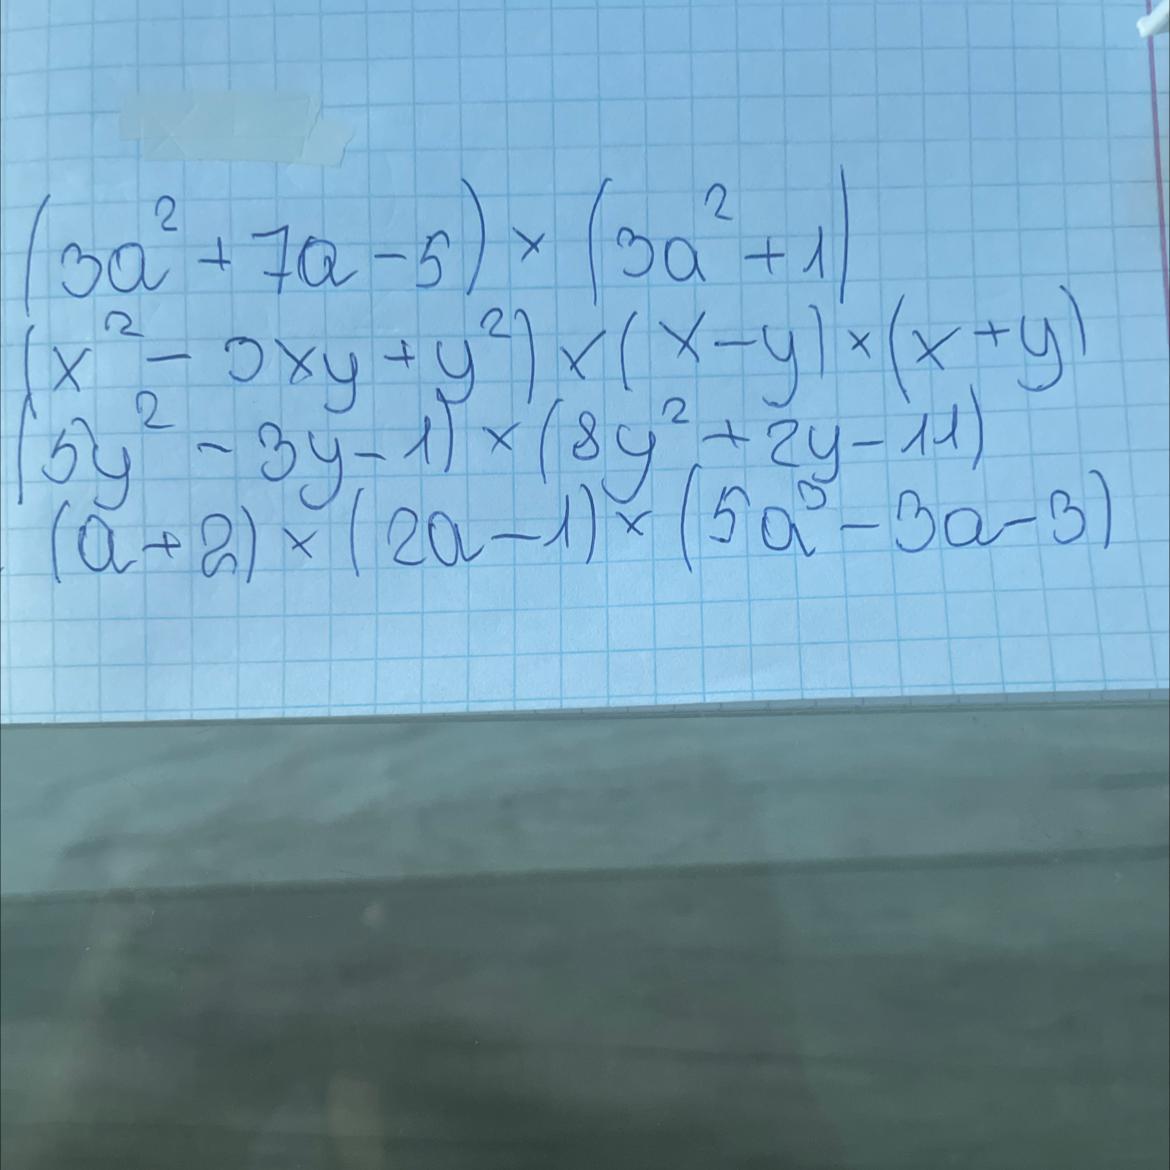 (3a² + 7a - 5) × (3a² + 1)
(x² - 3xy + y²) × (x - y) × (x + y)
(5y² - 3y - 1) × (8y² + 2y - 11)
(a + 2) × (2a - 1) × (5a³ - 3a - 3)